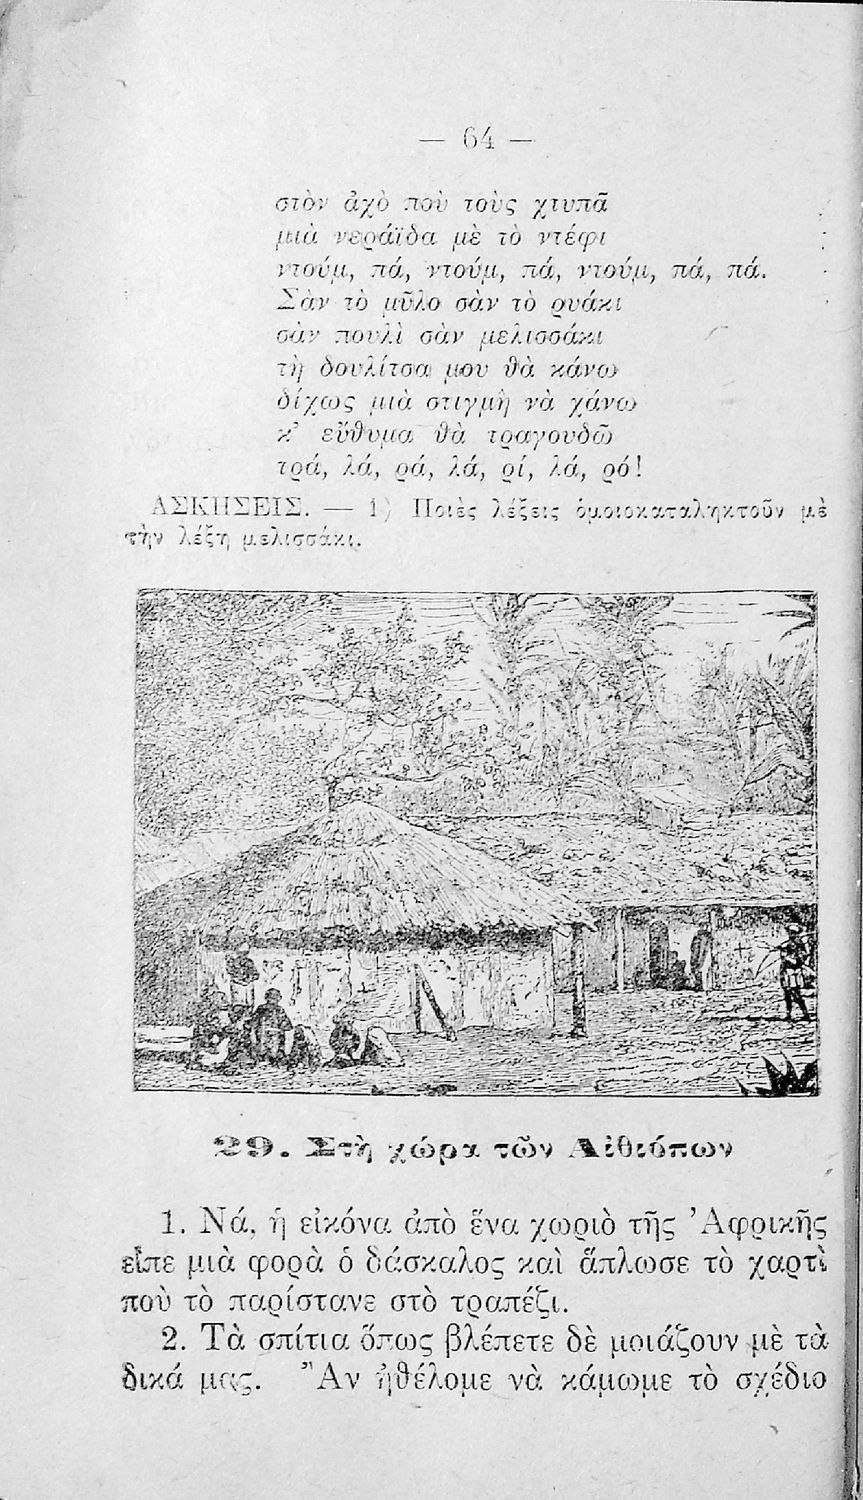 — 64 —
στὸν ἀχὸ ποὺ τοὺς χτυπᾶ
μιὰ νεράϊδα μὲ τὸ ντέφι
ντούμ, πά, ντούμ, πά, ντούμ, πά, πά.
Σὰν τὸ μῦλο σὰν τὸ ρυάκι
σὰν πουλὶ σὰν μελισσάκι
τὴ δουλίτσα μου θὰ κάνω
δίχως μιὰ στιγμὴ νὰ χάνω
κ᾿ εὔθυμα θὰ τραγουδῶ
τρά, λά, ρά, λά, ρί, λά, ρό!
ΑΣΚΗΣΕΙΣ. — 1) Ποιὲς λέξεις ὁμοιοκαταληκτοῦν μὲ
τὴν λέξη μελισσάκι.
29. Στὴ χώρα τῶν Αἰθιόπων
1. Νά, ἡ εἰκόνα ἀπὸ ἕνα χωριὸ τῆς Ἀφρικῆς
εἶπε μιὰ φορὰ ὁ δάσκαλος καὶ ἅπλωσε τὸ χαρτὶ
ποὺ τὸ παρίστανε στὸ τραπέζι.
2. Τὰ σπίτια ὅπως βλέπετε δὲ μοιάζουν μὲ τὰ
δικά μας. Ἂν ἠθέλομε νὰ κάμωμε τὸ σχέδιο